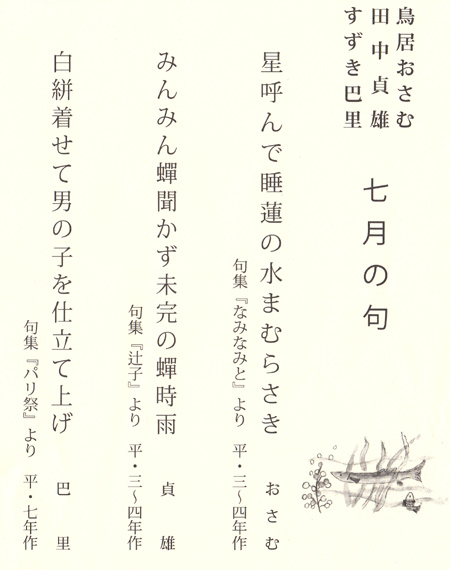 鳥居おさむ
田中貞雄
すずき巴里
七月の句
星呼んで睡蓮の水まむらさき
おさむ
句集『なみなみと』より 平・三〜四年作
みんみん蟬聞かず未完の蟬時雨
貞雄
句集『辻子』より 平・三〜四年作
白絣着せて男の子を仕立て上げ
巴里
句集『パリ祭』より 平・七年作